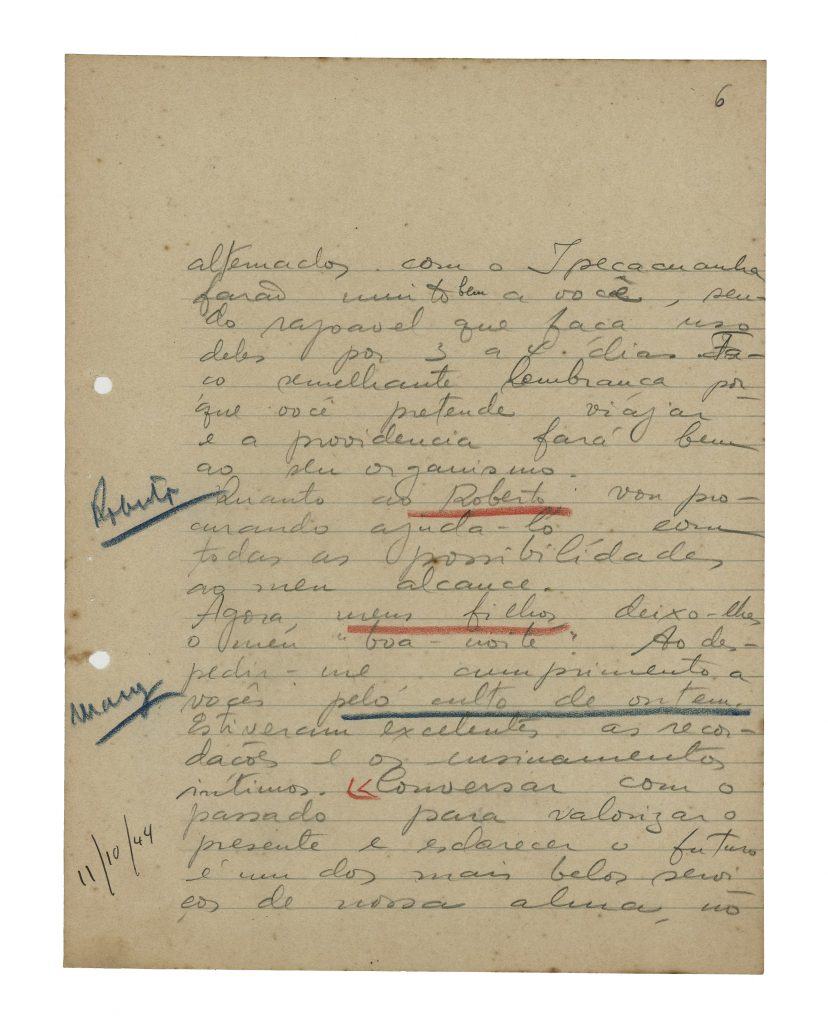 6
alternados com o Ipecacuanha
farão muito bem a você, sen-
do razoavel que faca uso
deles por 3 a 4 dias. Fa-
co semelhante lembranca por-
que você pretende viajar
e a providencia fará bem
ao seu organismo.
Roberto
Quanto ao Roberto vou pro-
curando ajuda-lo com
todas as possibilidades
ao meu alcance.
Agora, meus filhos deixo-lhes
o meu "boa-noite". Ao des-
pedir-me cumprimento a
vocês pelo culto de ontem.
Estiveram excelentes as recor-
dações e os ensinamentos
intimos. Conversar com o
passado para valorizar o
presente e esclarecer o futuro
é um dos mais belos servi
ços de nossa alma, no
11/10/44